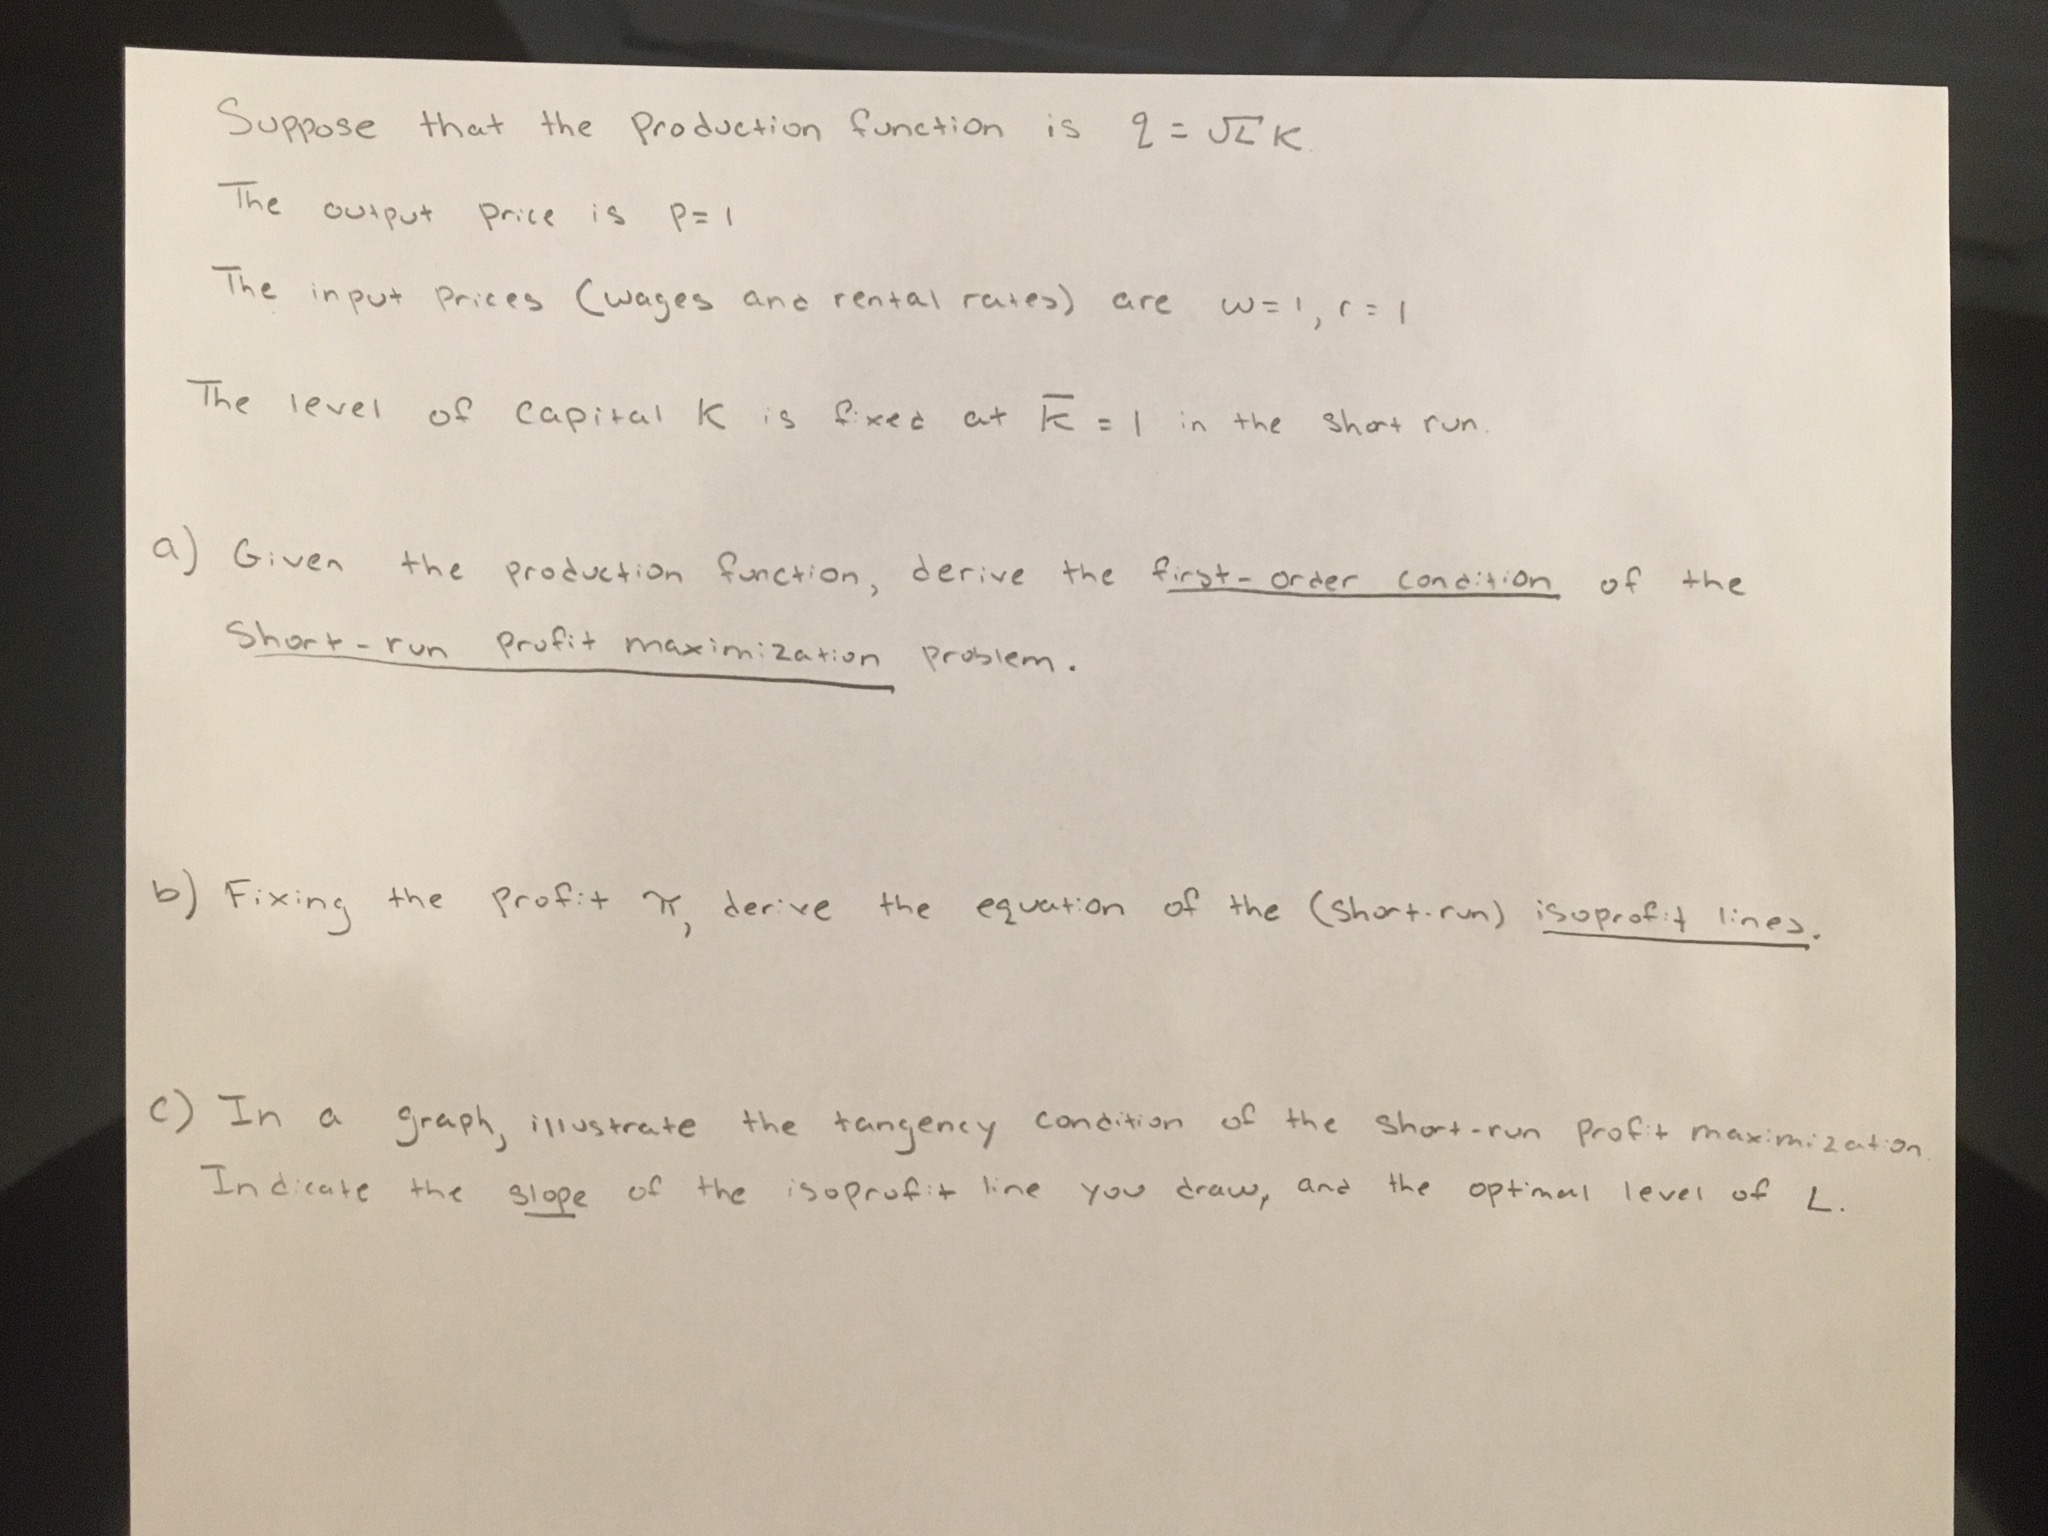 Suppose that the production function is q = √L K.
The output price is p = 1
The input prices (wages and rental rates) are w = 1, r = 1
The level of capital K is fixed at K̅ = 1 in the short run.
a) Given the production function, derive the first-order condition of the
short-run profit maximization problem.
b) Fixing the profit π, derive the equation of the (short-run) isoprofit lines.
c) In a graph, illustrate the tangency condition of the short-run profit maximization.
Indicate the slope of the isoprofit line you draw, and the optimal level of L.